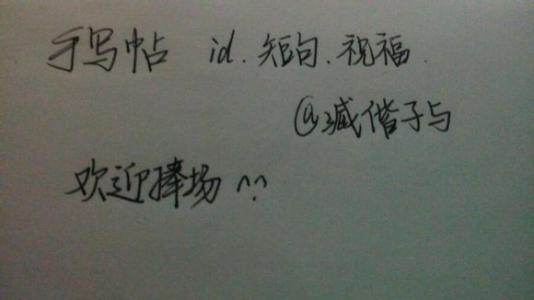 手写帖 id.短句.祝福.
@臧偕子与
欢迎捧场^^